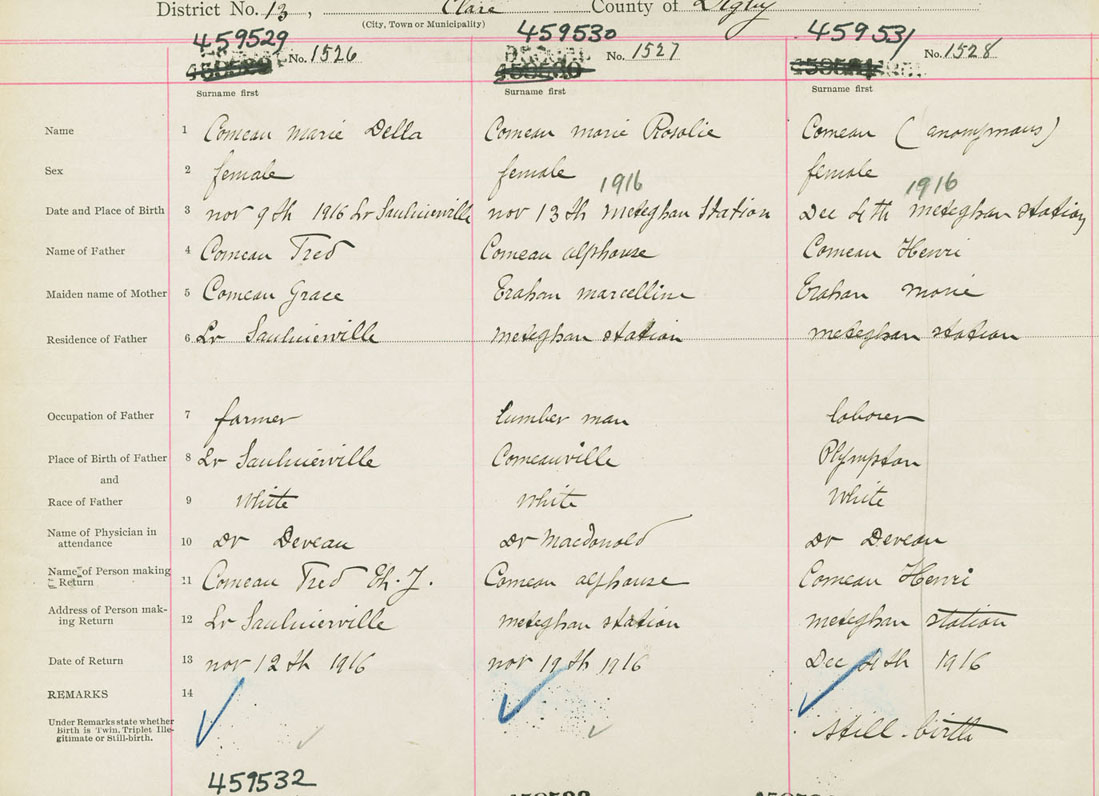 District No. 13, Clare County of Digby
(City, Town or Municipality)
459529 459530 459531
No. 1526 No. 1527 No. 1528
Surname first Surname first Surname first
Name 1 Comeau Marie Della Comeau marie Rosalie Comeau (anonymous)
Sex 2 female female female
1916 1916
Date and Place of Birth 3 nov 9th 1916 Lr Saulnierville nov 13th Meteghan Station Dec 4th meteghan station
Name of Father 4 Comeau Fred Comeau alphonse Comeau Henri
Maiden name of Mother 5 Comeau Grace Trahan marcelline Trahan marie
Residence of Father 6 Lr Saulnierville meteghan station meteghan station
Occupation of Father 7 farmer lumber man laborer
Place of Birth of Father 8 Lr Saulnierville Comeauville Plympton
and
Race of Father 9 White white White
Name of Physician in
attendance 10 Dr Deveau Dr Macdonald Dr Deveau
Name of Person making
Return 11 Comeau Fred Ch. J. Comeau alphonse Comeau Henri
Address of Person mak-
ing Return 12 Lr Saulnierville meteghan station meteghan station
Date of Return 13 nov 12th 1916 nov 19th 1916 Dec 4th 1916
REMARKS 14
Under Remarks state whether
Birth is Twin, Triplet Ille-
gitimate or Still-birth.
still-birth
459532